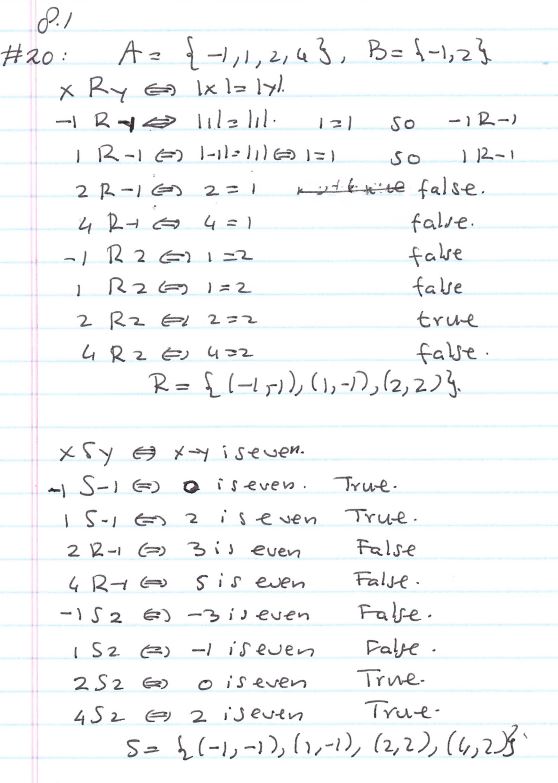 8.1
#20: A = { -1, 1, 2, 4 }, B = { -1, 2 }
x R y ⇔ |x| = |y|.
-1 R -1 ⇔ |1| = |1|. 1=1 so -1 R -1
1 R -1 ⇔ |-1| = |1| ⇔ 1=1 so 1 R -1
2 R -1 ⇔ 2 = 1 false.
4 R -1 ⇔ 4 = 1 false.
-1 R 2 ⇔ 1 = 2 false
1 R 2 ⇔ 1 = 2 false
2 R 2 ⇔ 2 = 2 true
4 R 2 ⇔ 4 = 2 false.
R = { (-1,-1), (1,-1), (2,2) }.
x S y ⇔ x-y is even.
-1 S -1 ⇔ 0 is even. True.
1 S -1 ⇔ 2 is even True.
2 R -1 ⇔ 3 is even False
4 R -1 ⇔ 5 is even False.
-1 S 2 ⇔ -3 is even False.
1 S 2 ⇔ -1 is even False.
2 S 2 ⇔ 0 is even True.
4 S 2 ⇔ 2 is even True.
S = { (-1,-1), (1,-1), (2,2), (4,2) }.